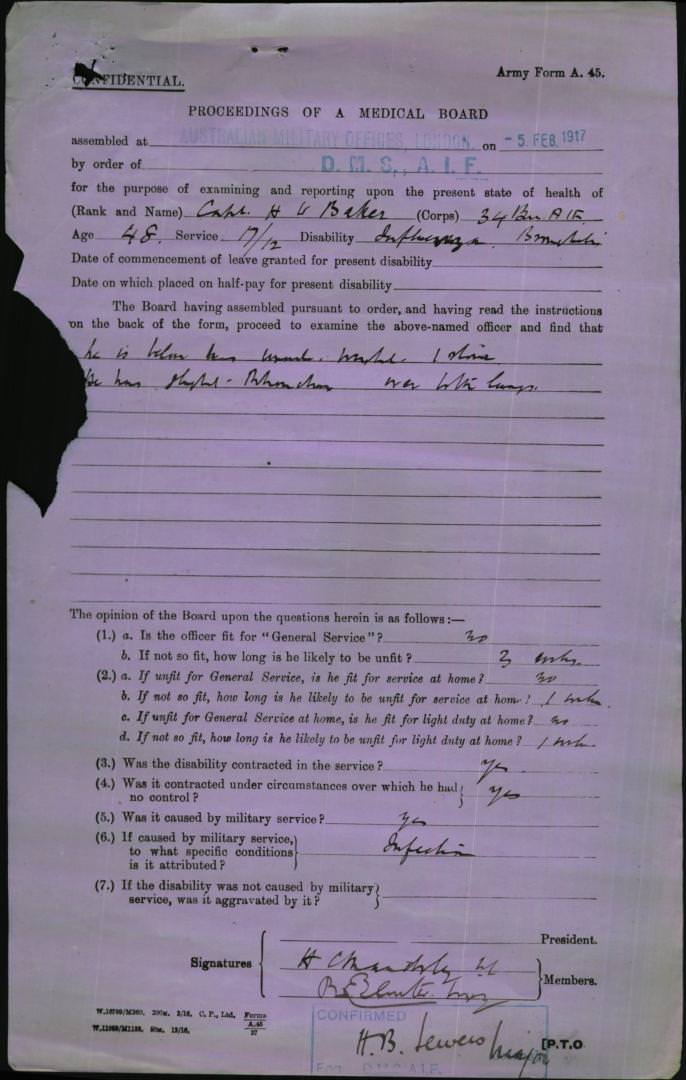 CONFIDENTIAL.
Army Form A. 45.
PROCEEDINGS OF A MEDICAL BOARD
assembled at AUSTRALIAN MILITARY OFFICES, LONDON. on - 5. FEB. 1917
by order of D. M. S., A. I. F.
for the purpose of examining and reporting upon the present state of health of
(Rank and Name) Capt. H W Baker (Corps) 34 Bn. AIF
Age 48. Service 17/12 Disability Influenza. Bronchitis
Date of commencement of leave granted for present disability
Date on which placed on half-pay for present disability
The Board having assembled pursuant to order, and having read the instructions
on the back of the form, proceed to examine the above-named officer and find that
he is below his usual weight - 1 stone
He has slight - Rhonchi over both lungs.
The opinion of the Board upon the questions herein is as follows:—
(1.) a. Is the officer fit for "General Service"? no
b. If not so fit, how long is he likely to be unfit?
(2.) a. If unfit for General Service, is he fit for service at home? no
b. If not so fit, how long is he likely to be unfit for service at home?
c. If unfit for General Service at home, is he fit for light duty at home? no
d. If not so fit, how long is he likely to be unfit for light duty at home?
(3.) Was the disability contracted in the service? yes
(4.) Was it contracted under circumstances over which he had
no control? yes
(5.) Was it caused by military service? yes
(6.) If caused by military service,
to what specific conditions
is it attributed? Infection
(7.) If the disability was not caused by military
service, was it aggravated by it?
President.
Signatures
Members.
W.16799/M360. 200m. 2/16. C. P., Ltd. Forms
A.45
27
CONFIRMED
H. B. Lewers Major
For D.M.S. A.I.F.
[P.T.O